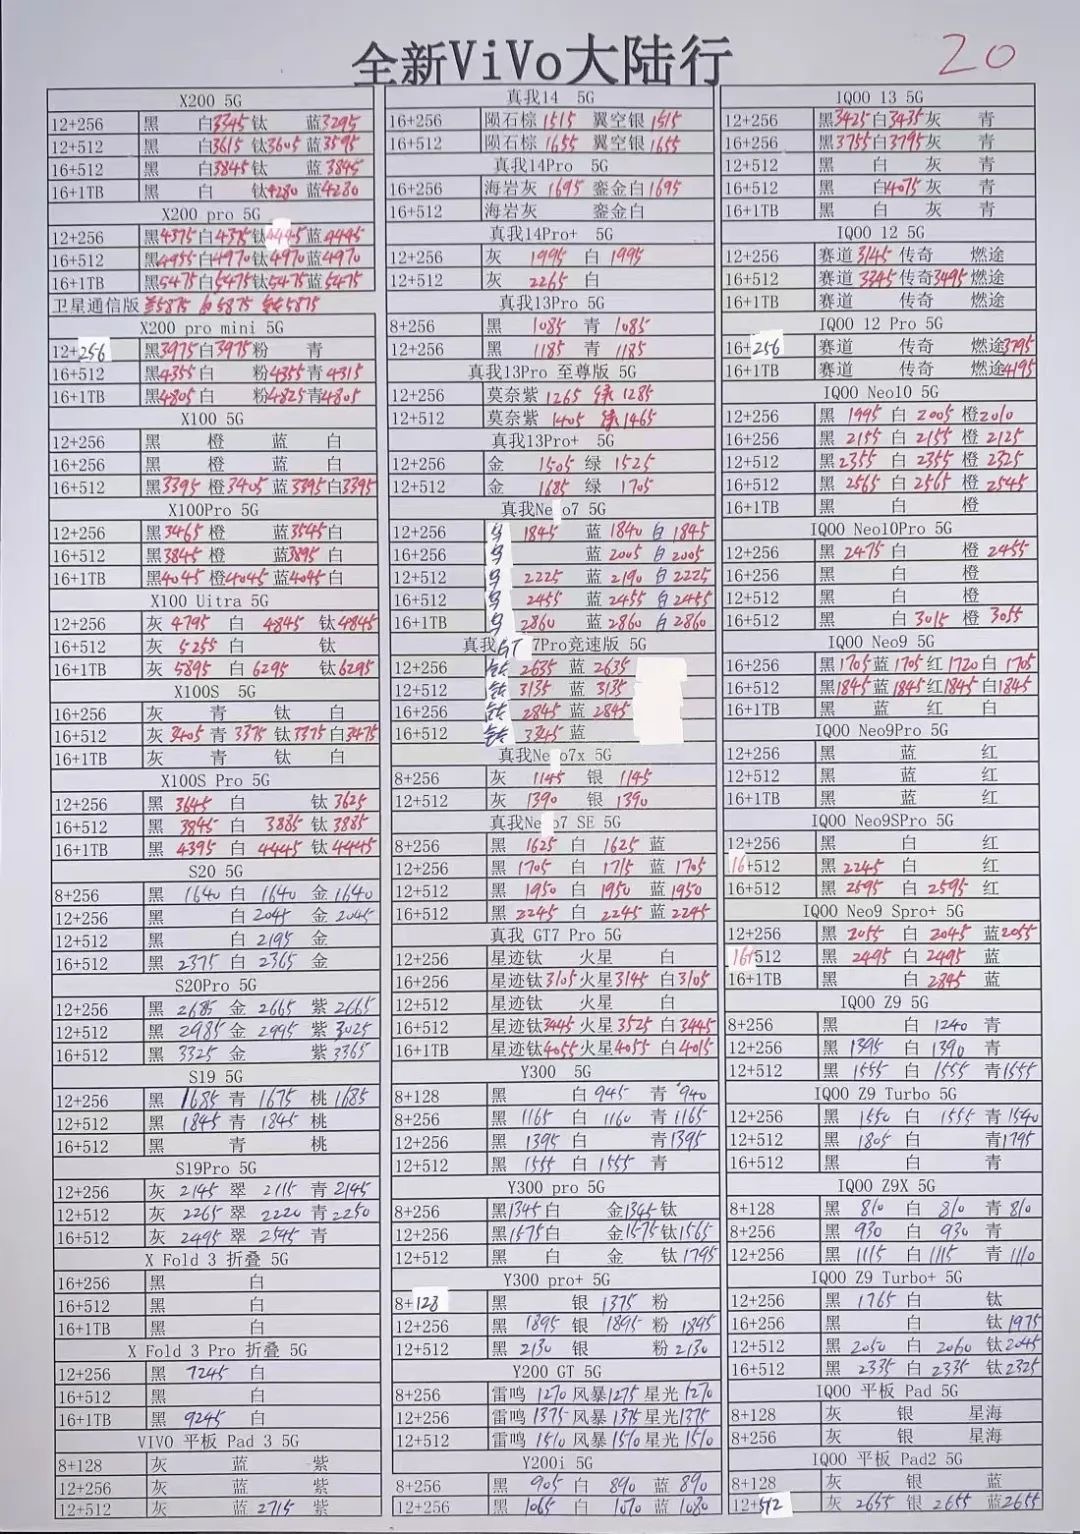 全新ViVo大陆行
20
X200 5G
12+256 黑 白3345 钛 蓝3295
12+512 黑 白3615 钛3605 蓝3595
16+512 黑 白3845 钛 蓝3845
16+1TB 黑 白 钛4280 蓝4280
X200 pro 5G
12+256 黑4375 白4375 钛4445 蓝4445
16+512 黑4955 白4970 钛4970 蓝4970
16+1TB 黑5475 白5475 钛5475 蓝5475
卫星通信版 5875 白5875 钛5875
X200 pro mini 5G
12+256 黑3975 白3975 粉 青
16+512 黑4355 白 粉4355 青4315
16+1TB 黑4805 白 粉4825 青4805
X100 5G
12+256 黑 橙 蓝 白
16+256 黑 橙 蓝 白
16+512 黑3395 橙3405 蓝3395 白3395
X100Pro 5G
12+256 黑3465 橙 蓝3545 白
16+512 黑3845 橙 蓝3895 白
16+1TB 黑4045 橙4045 蓝4045 白
X100 Uitra 5G
12+256 灰 4795 白 4845 钛4845
16+512 灰 5255 白 钛
16+1TB 灰 5895 白 6295 钛6295
X100S 5G
16+256 灰 青 钛 白
16+512 灰3405 青 3375 钛3375 白3475
16+1TB 灰 青 钛 白
X100S Pro 5G
12+256 黑 3645 白 钛 3625
16+512 黑 3845 白 3885 钛 3885
16+1TB 黑 4395 白 4445 钛 4445
S20 5G
8+256 黑 1640 白 1640 金 1640
12+256 黑 白 2045 金 2045
12+512 黑 白 2195 金
16+512 黑 2375 白 2365 金
S20Pro 5G
12+256 黑 2685 金 2665 紫 2665
12+512 黑 2985 金 2995 紫 3025
16+512 黑 3325 金 紫 3365
S19 5G
12+256 黑 1685 青 1675 桃 1685
12+512 黑 1845 青 1845 桃
16+512 黑 青 桃
S19Pro 5G
12+256 灰 2145 翠 2115 青 2145
12+512 灰 2265 翠 2220 青 2250
16+512 灰 2495 翠 2545 青
X Fold 3 折叠 5G
16+256 黑 白
16+512 黑 白
16+1TB 黑 白
X Fold 3 Pro 折叠 5G
12+256 黑 7245 白
16+512 黑 白
16+1TB 黑 9245 白
VIVO 平板 Pad 3 5G
8+128 灰 蓝 紫
12+256 灰 蓝 紫
12+512 灰 蓝 2715 紫
真我14 5G
16+256 陨石棕 1515 翼空银 1515
16+512 陨石棕 1655 翼空银 1655
真我14Pro 5G
16+256 海岩灰 1695 銮金白1695
16+512 海岩灰 銮金白
真我14Pro+ 5G
12+256 灰 1995 白 1995
12+512 灰 2265 白
真我13Pro 5G
8+256 黑 1085 青 1085
12+256 黑 1185 青 1185
真我13Pro 至尊版 5G
12+256 莫奈紫 1265 绿 1285
12+512 莫奈紫 1405 绿 1465
真我13Pro+ 5G
12+256 金 1505 绿 1525
12+512 金 1685 绿 1705
真我Neo7 5G
12+256 1845 蓝 1840 白 1845
16+256 蓝 2005 白 2005
12+512 2225 蓝 2190 白 2225
16+512 2455 蓝 2455 白 2455
16+1TB 2860 蓝 2860 白 2860
真我GT 7Pro竞速版 5G
12+256 钛 2635 蓝 2635
12+512 钛 3135 蓝 3135
16+256 钛 2845 蓝 2845
16+512 钛 3345 蓝
真我Neo7x 5G
8+256 灰 1145 银 1145
12+512 灰 1390 银 1390
真我Neo7 SE 5G
8+256 黑 1625 白 1625 蓝
12+256 黑 1705 白 1715 蓝 1705
12+512 黑 1950 白 1950 蓝 1950
16+512 黑 2245 白 2245 蓝 2245
真我 GT7 Pro 5G
12+256 星迹钛 火星 白
16+256 星迹钛3105 火星 3145 白3105
12+512 星迹钛 火星 白
16+512 星迹钛3445 火星 3525 白 3445
16+1TB 星迹钛4055 火星 4055 白 4015
Y300 5G
8+128 黑 白 945 青 940
8+256 黑 1165 白 1160 青 1165
12+256 黑 1395 白 青1395
12+512 黑 1555 白 1555 青
Y300 pro 5G
8+256 黑1345 白 金1345 钛
12+256 黑1575 白 金1575 钛1565
12+512 黑 白 金 钛1795
Y300 pro+ 5G
8+128 黑 银 1375 粉
12+256 黑 1895 银 1895 粉 1895
12+512 黑 2130 银 粉 2130
Y200 GT 5G
8+256 雷鸣 1270 风暴1275 星光1270
12+256 雷鸣 1375 风暴1375 星光1375
12+512 雷鸣 1510 风暴1510 星光1510
Y200i 5G
8+256 黑 905 白 890 蓝 890
12+256 黑 1065 白 1070 蓝 1080
IQOO 13 5G
12+256 黑3425 白3435 灰 青
16+256 黑3755 白3795 灰 青
12+512 黑 白 灰 青
16+512 黑 白4075 灰 青
16+1TB 黑 白 灰 青
IQOO 12 5G
12+256 赛道 3145 传奇 燃途
16+512 赛道 3345 传奇3495 燃途
16+1TB 赛道 传奇 燃途
IQOO 12 Pro 5G
16+256 赛道 传奇 燃途3795
16+1TB 赛道 传奇 燃途4195
IQOO Neo10 5G
12+256 黑 1995 白 2005 橙2010
16+256 黑 2155 白 2155 橙 2125
12+512 黑2355 白 2355 橙 2325
16+512 黑 2565 白 2565 橙 2545
16+1TB 黑 白 橙
IQOO Neo10Pro 5G
12+256 黑 2475 白 橙 2455
16+256 黑 白 橙
12+512 黑 白 橙
16+512 黑 白 3015 橙 3055
IQOO Neo9 5G
16+256 黑1705 蓝 1705 红 1720 白 1705
16+512 黑1845 蓝 1845 红1845 白1845
16+1TB 黑 蓝 红 白
IQOO Neo9Pro 5G
12+256 黑 蓝 红
12+512 黑 蓝 红
16+1TB 黑 蓝 红
IQOO Neo9SPro 5G
12+256 黑 白 红
16+512 黑 2245 白 红
16+512 黑 2595 白 2595 红
IQOO Neo9 Spro+ 5G
12+256 黑 2055 白 2045 蓝2055
16+512 黑 2495 白 2495 蓝
16+1TB 黑 白 2845 蓝
IQOO Z9 5G
8+256 黑 白 1240 青
12+256 黑 1395 白 1390 青
12+512 黑 1555 白 1555 青1555
IQOO Z9 Turbo 5G
12+256 黑 1550 白 1555 青 1540
12+512 黑 1805 白 青1795
16+512 黑 白 青
IQOO Z9X 5G
8+128 黑 810 白 810 青 810
8+256 黑 930 白 930 青
12+256 黑 1115 白 1115 青 1110
IQOO Z9 Turbo+ 5G
12+256 黑 1765 白 钛
16+256 黑 白 钛 1975
12+512 黑 2050 白 2060 钛2045
16+512 黑 2335 白 2335 钛2325
IQOO 平板 Pad 5G
8+128 灰 银 星海
8+256 灰 银 星海
IQOO 平板 Pad2 5G
8+128 灰 银 蓝
12+512 灰 2655 银 2655 蓝2655